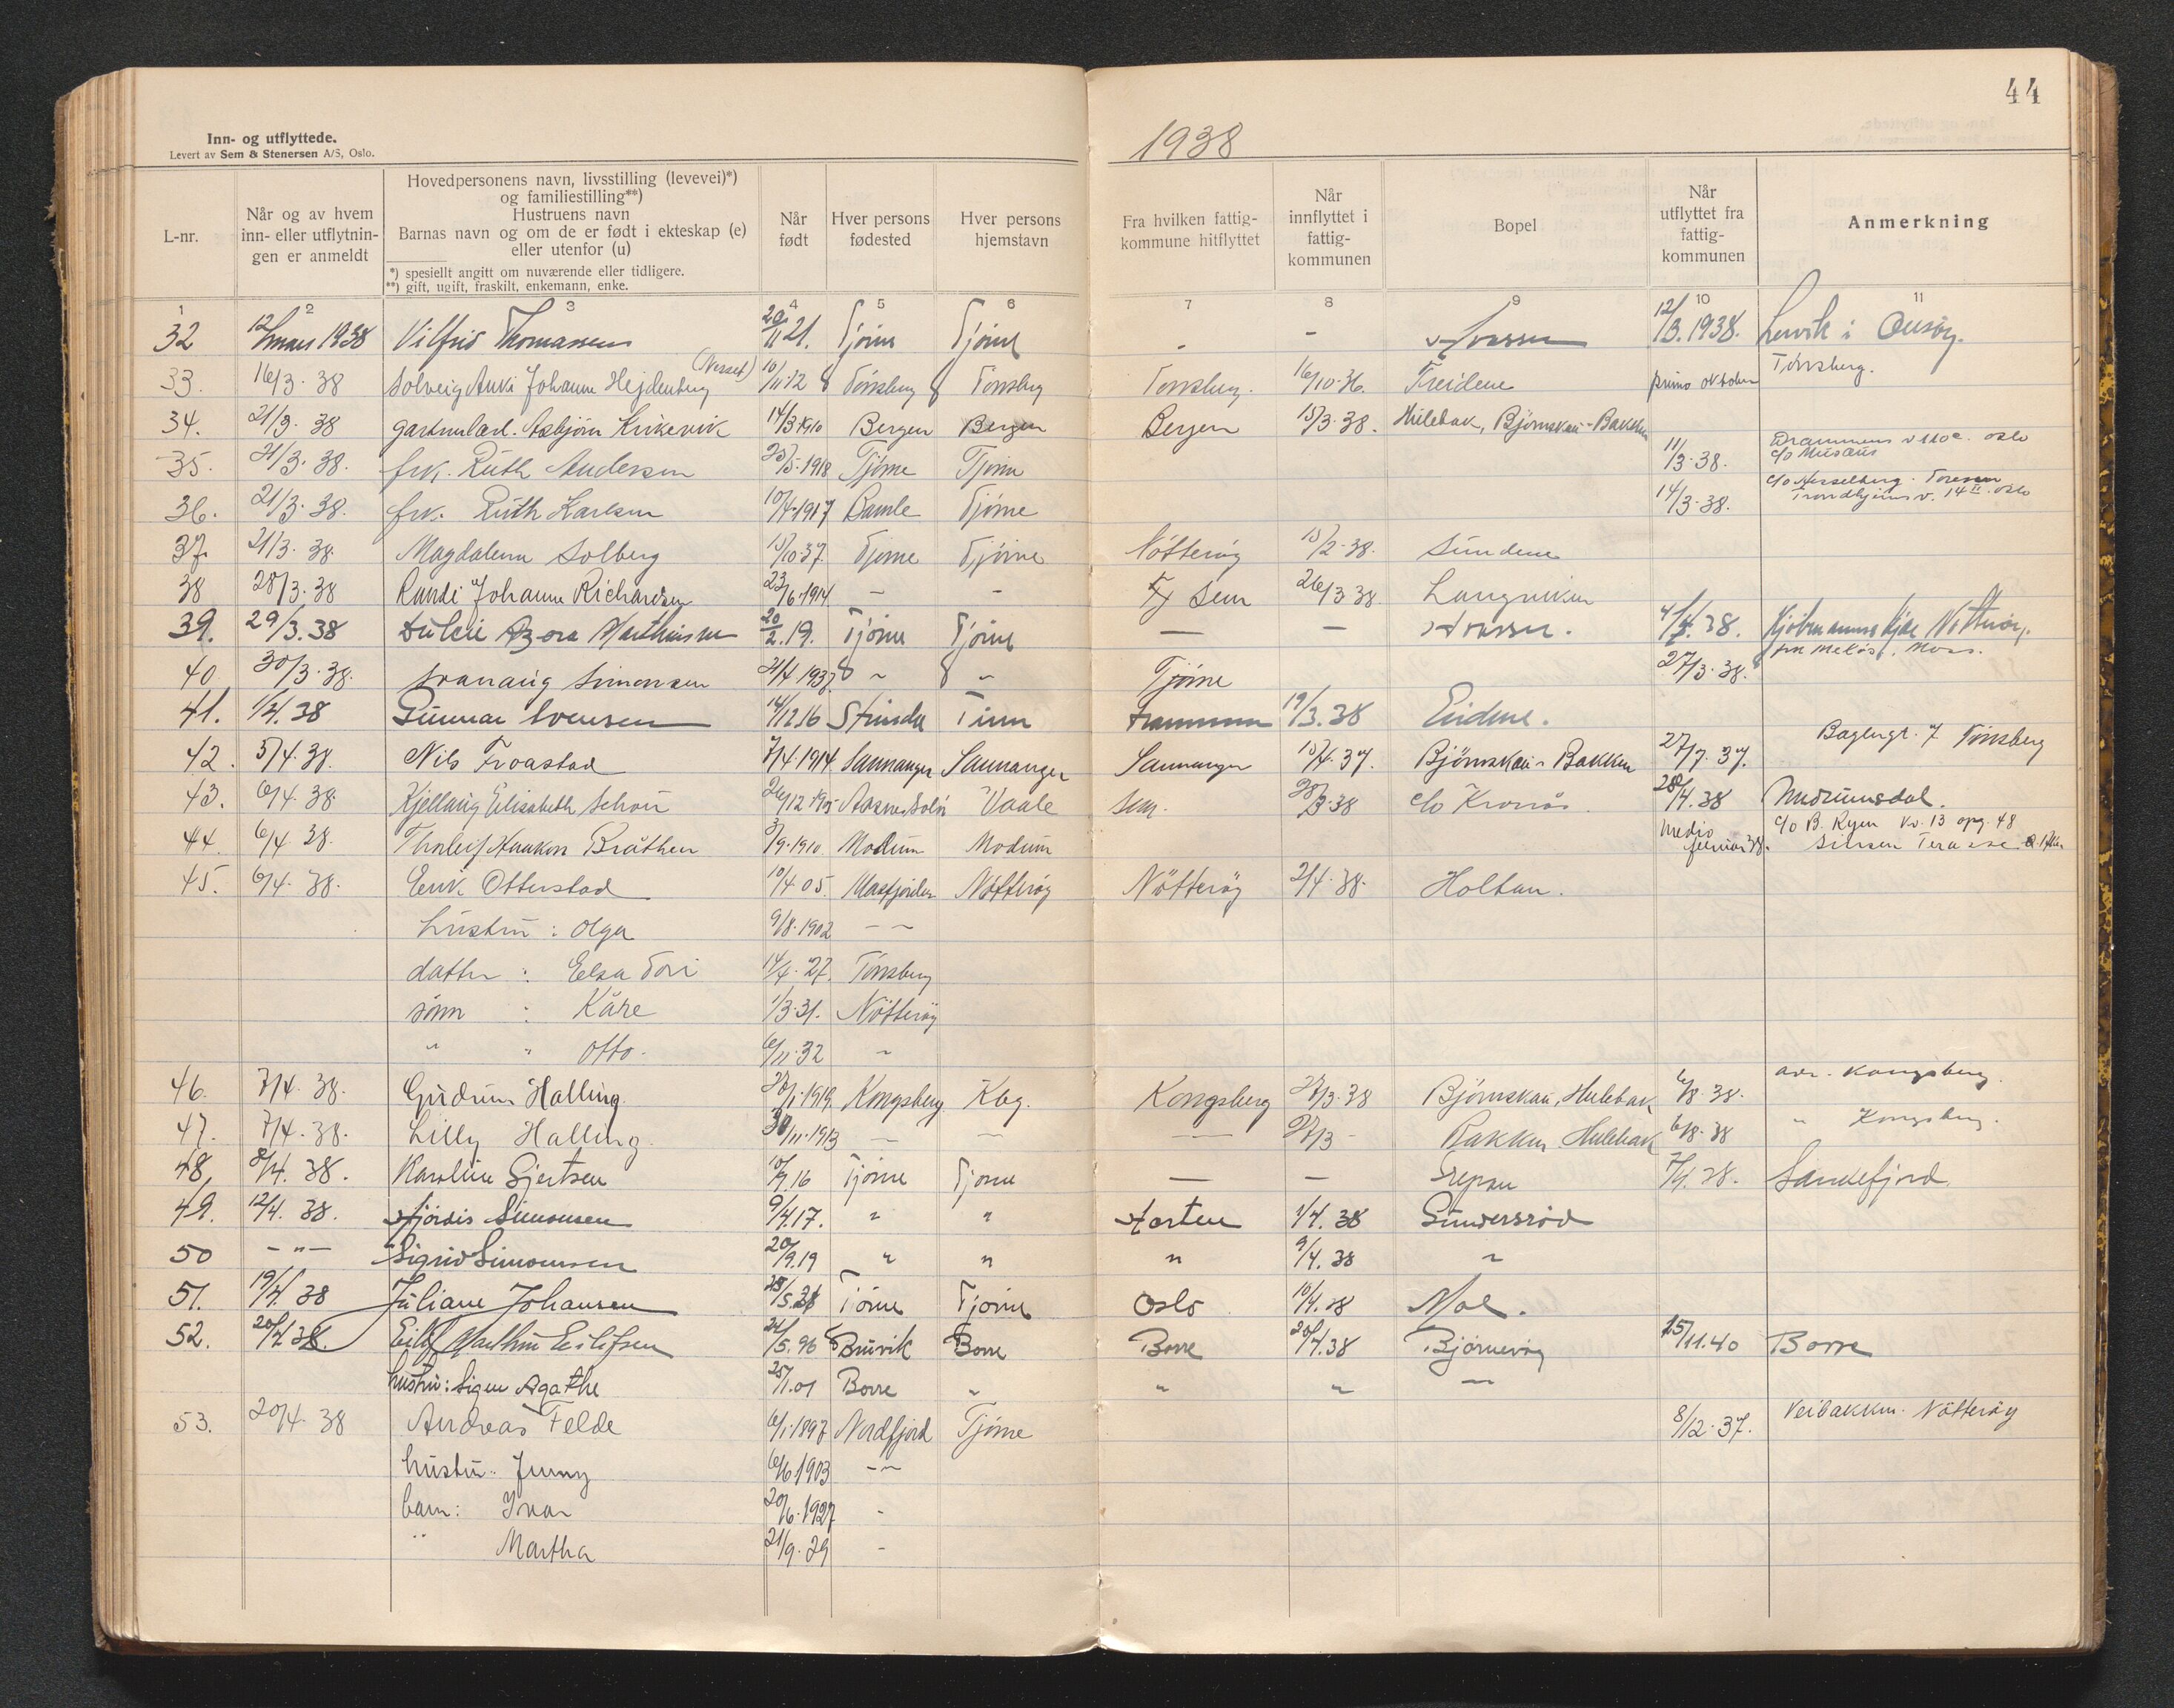 44
Inn- og utflyttede.
Levert av Sem & Stenersen A/S, Oslo.
1938
L-nr.
Når og av hvem inn- eller utflytnin-gen er anmeldt
Hovedpersonens navn, livsstilling (levevei)*)
og familiestilling**)
Hustruens navn
Barnas navn og om de er født i ekteskap (e)
eller utenfor (u)
*) spesiellt angitt om nuværende eller tidligere.
**) gift, ugift, fraskilt, enkemann, enke.
Når født
Hver persons fødested
Hver persons hjemstavn
Fra hvilken fattig-kommune hitflyttet
Når innflyttet i fattig-kommunen
Bopel
Når utflyttet fra fattig-kommunen
Anmerkning
1 2 3 4 5 6 7 8 9 10 11
32 12/mars 1938 Vilfrid Thomassen 20/11 21. Tjöme Tjöme - - 12/3.1938. i
33. 16/3.38 Solveig Anni Johanne Hejdenberg (Nesset) 10/11.12 Tönsberg Tönsberg Tonsberg. 16/10.36. Treidene primo oktober Tönsberg.
34. 21/3.38 Asbjörn Kirkevik 14/3 1910 Bergen Bergen Bergen 15/3.38. Hulebak, Björnskau-Bakken
35. 21/3.38. frk. Ruth Andersen 25/5.1918 Tjöme Tjöme 11/3.38. Drammens v 110c. oslo c/o Musæus
36. 21/3.38. frk. Ruth Karlsen 10/4.1917 Bamle Tjöme 14/3.38. c/o Hesselberg. Trondhjems v. 14 II. oslo
37. 21/3.38. Magdalena Solberg 15/10.37. Tjöme Tjöme Nötteröy 15/2.38. Sundene
38 28/3.38 Randi Johanne Richardsen 23/6.1914 - - Sem 26/3 38. Langviken
39. 29/3.38 Dulcie Azora Mathisen 20/2.19. Tjöme Tjöme — — 4/4.38. Nötteröy.
40 30/3.38. Svanaug Simonsen 21/4 1937. " " Tjöme 27/3.38. fru Melös, Moss.
41. 1/4.38 Gunnar Svensen 14/12 16 Strinda Tinn 19/3.38 Eidene.
42. 5/4.38. Nils Froastad 7/4.1914 Samnanger Samnanger Samnanger 15/4.37. Björnskau-Bakken 27/7.37. Baglergt. 7 Tönsberg
43. 6/4.38. Kjellaug Elisabeth Schou 26/12 1905 Vaale Sem. 28/3.38 c/o Kronös 28/4.38 Undrumsdal.
44. 6/4.38. Thorleif Haakon Bråthen 3/9.1910. Modum Modum medio februar 38. c/o B. Ryen Kv. 13 opg. 48 Sinsen Terasse
45. 6/4.38. Erik Otterstad 10/4 05. Masfjorden Nötteröy Nötteröy 2/4.38. Holtan.
hustru: Olga 9/8.1902 — —
datter: Elsa Tori 14/4.27. Tönsberg
sönn : Kåre 1/3.31. Nötteröy
" " Otto. 6/11.32 "
46. 7/4.38. Gudrun Halling. 27/1.1919. Kongsberg Kbg. Kongsberg 27/3.38 Björnskau, Hulebak 6/8.38. adr. Kongsberg.
47. 7/4.38. Lilly Halling. 30/11.1913 — — — 27/3 - Bakken, Hulebak 6/8.38 " Kongsberg.
48, 8/4.38. Karoline Gjertsen 10/7.16 Tjöme Tjöme — — Grepan 7/4.38. Sandefjord
49. 12/4.38. Hjördis Simonsen 9/4.17. " " Horten 9/4.38 Sundersröd
50 -"- Sigrid Simonsen 20/9.19 " " " 9/4.38 "
51. 19/4.38 Juliane Johansen Tjöme Tjöme Oslo 10/4.38 Mol.
52. 20/4.38. Eilif Mathin Eilifsen 24/5.96 Bruvik Borre Borre 20/4.38 Björneröy 15/11.40 Borre
hustru: Signe Agathe 25/1.01 Borre " " " —
53. 20/4.38 Andreas Felde 6/1.1897 Nordfjord Tjöme 8/12.37. Veibakken. Nötteröy
hustru: Jenny 6/6 1903 — —
barn: Ivar 20/6.1927 -
" Martha 21/9.29 -